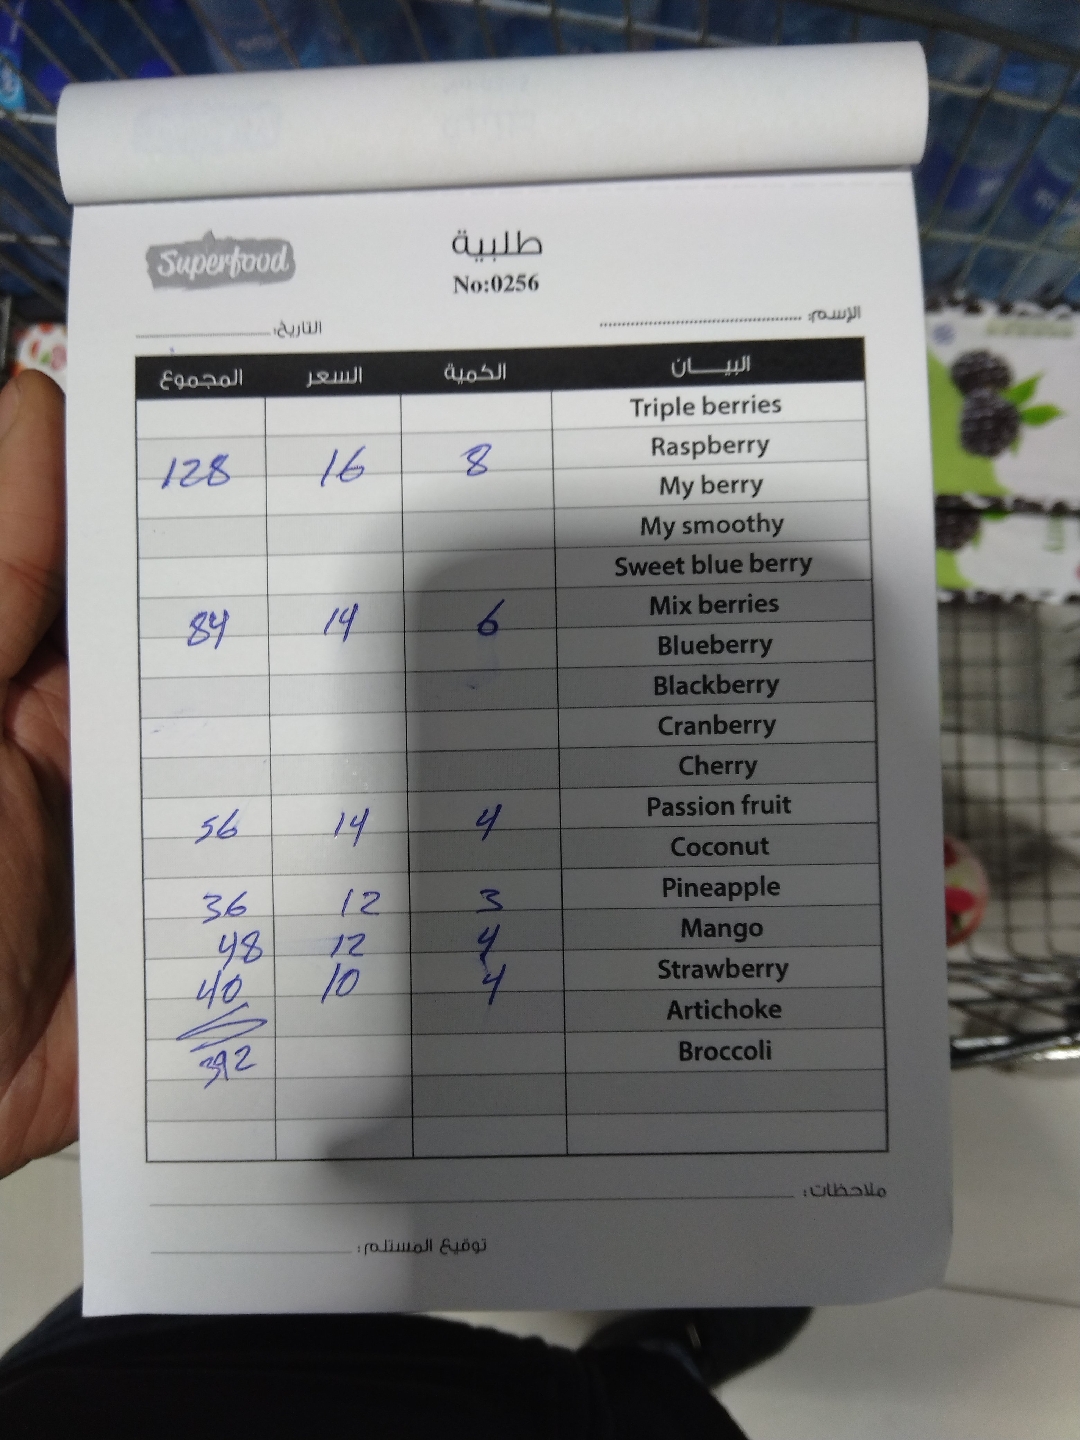 Superfood
طلبية
No:0256
الإسم:
التاريخ:
البيــــان الكمية السعر المجموع
Triple berries
Raspberry 8 16 128
My berry
My smoothy
Sweet blue berry
Mix berries 6 14 84
Blueberry
Blackberry
Cranberry
Cherry
Passion fruit 4 14 56
Coconut
Pineapple 3 12 36
Mango 4 12 48
Strawberry 4 10 40
Artichoke
Broccoli 392
ملاحظات:
توقيع المستلم: